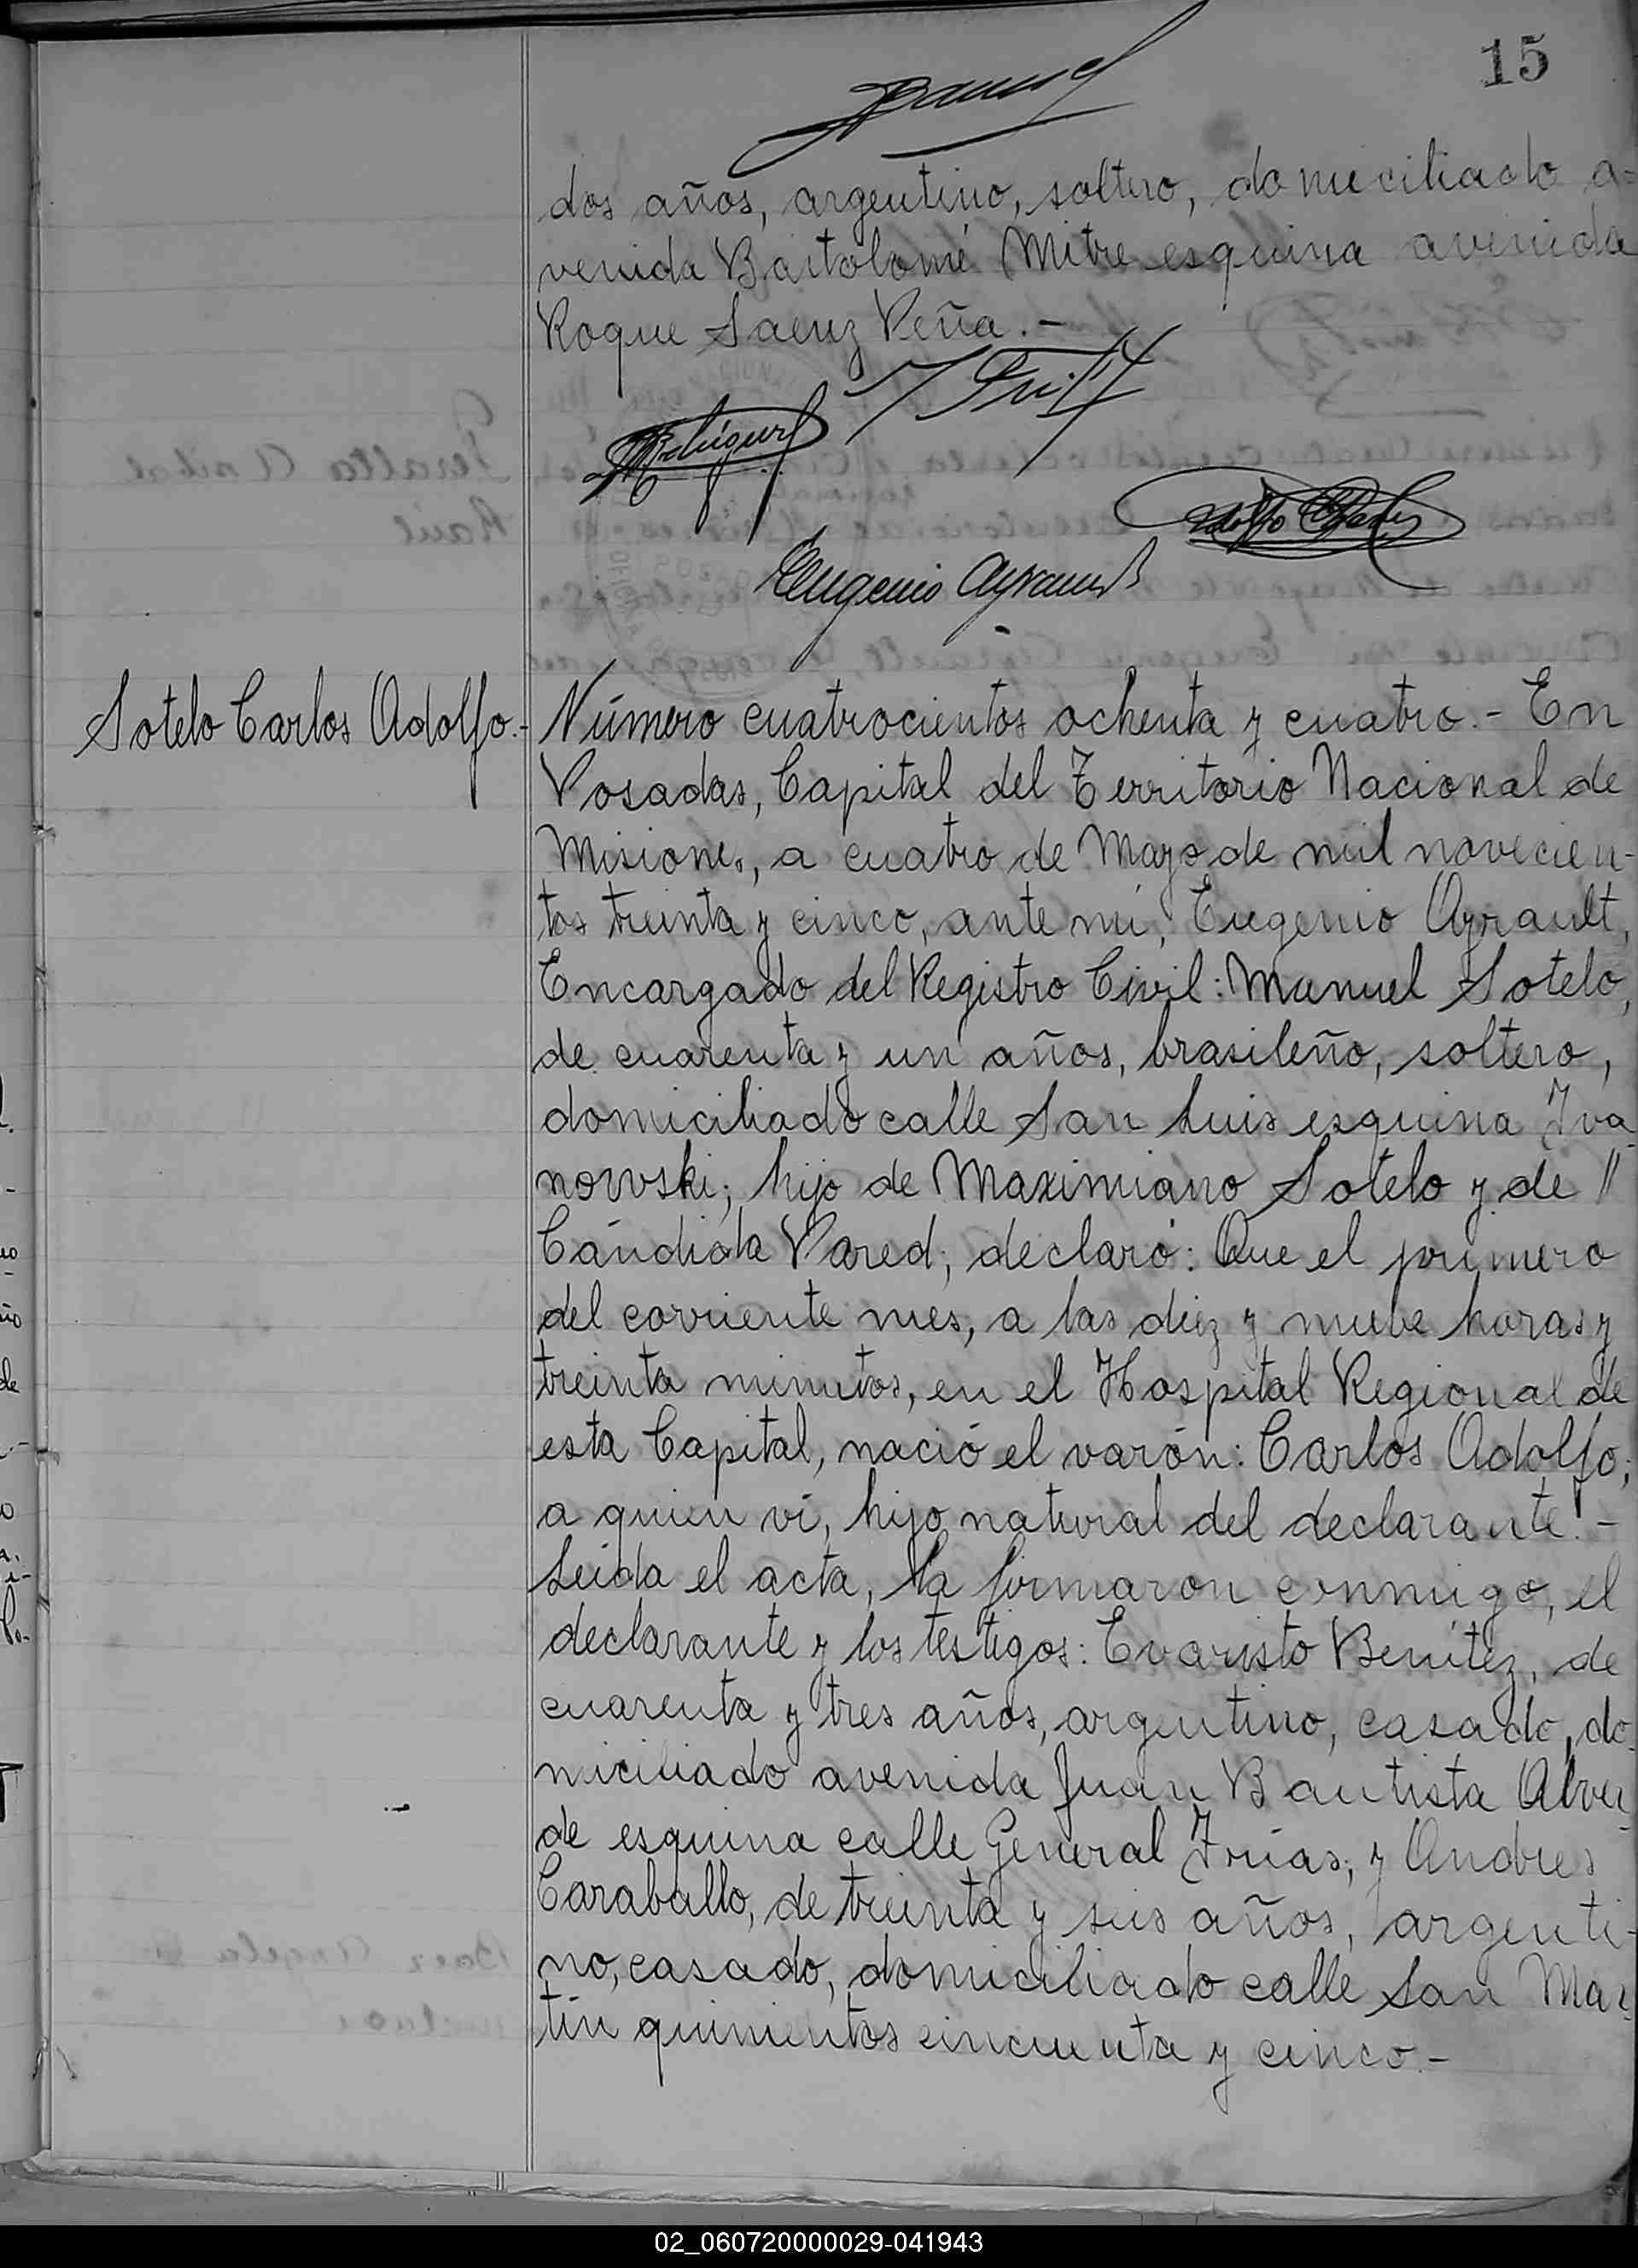 15
dos años, argentino, soltero, domiciliado a=
venida Bartolomé Mitre esquina avenida
Roque Saenz Peña.-
Eugenio Ayrault
Sotelo Carlos Adolfo.-
Número cuatrocientos ochenta y cuatro.- En
Posadas, Capital del Territorio Nacional de
Misiones, a cuatro de Mayo de mil novecien-
tos treinta y cinco, ante mí, Eugenio Ayrault,
Encargado del Registro Civil: Manuel Sotelo,
de cuarenta y un años, brasileño, soltero,
domiciliado calle San Luis esquina Iva
nowski; hijo de Maximiano Sotelo y de //
Cándida Pared; declaró: Que el primero
del corriente mes, a las diez y nueve horas y
treinta minutos, en el Hospital Regional de
esta Capital, nació el varón: Carlos Adolfo;
a quien ví, hijo natural del declarante.-
Leida el acta, la firmaron conmigo, el
declarante y los testigos: Evaristo Benítez, de
cuarenta y tres años, argentino, casado, do-
miciliado avenida Juan Bautista Alver
de esquina calle General Frias; y Andres
Caraballo, de treinta y seis años, argenti-
no, casado, domiciliado calle San Mar
tín quinientos cincuenta y cinco.-
02_060720000029-041943